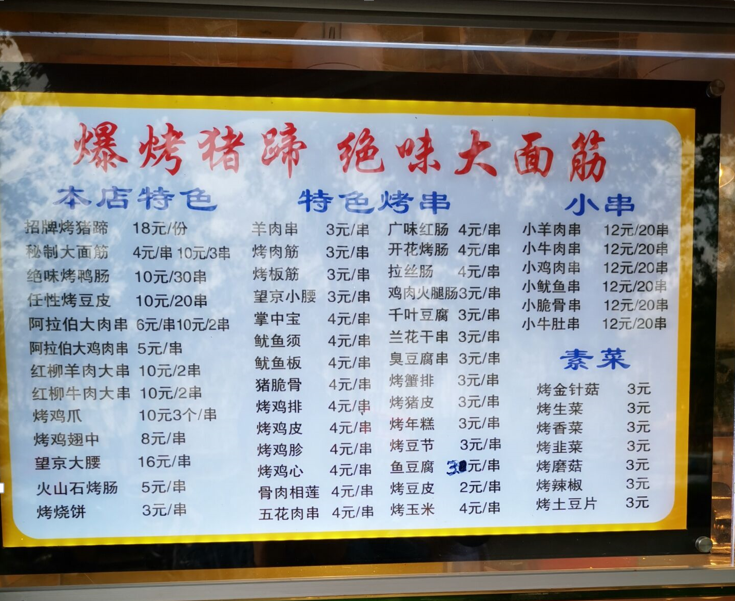 爆烤猪蹄 绝味大面筋
本店特色
招牌烤猪蹄 18元/份
秘制大面筋 4元/串 10元/3串
绝味烤鸭肠 10元/30串
任性烤豆皮 10元/20串
阿拉伯大肉串 6元/串10元/2串
阿拉伯大鸡肉串 5元/串
红柳羊肉大串 10元/2串
红柳牛肉大串 10元/2串
烤鸡爪 10元3个/串
烤鸡翅中 8元/串
望京大腰 16元/串
火山石烤肠 5元/串
烤烧饼 3元/串
特色烤串
羊肉串 3元/串
烤肉筋 3元/串
烤板筋 3元/串
望京小腰 3元/串
掌中宝 4元/串
鱿鱼须 4元/串
鱿鱼板 4元/串
猪脆骨 4元/串
烤鸡排 4元/串
烤鸡皮 4元/串
烤鸡胗 4元/串
烤鸡心 4元/串
骨肉相莲 4元/串
五花肉串 4元/串
广味红肠 4元/串
开花烤肠 4元/串
拉丝肠 4元/串
鸡肉火腿肠3元/串
千叶豆腐 3元/串
兰花干串 3元/串
臭豆腐串 3元/串
烤蟹排 3元/串
烤猪皮 3元/串
烤年糕 3元/串
烤豆节 3元/串
鱼豆腐 3元/串
烤豆皮 2元/串
烤玉米 4元/串
小串
小羊肉串 12元/20串
小牛肉串 12元/20串
小鸡肉串 12元/20串
小鱿鱼串 12元/20串
小脆骨串 12元/20串
小牛肚串 12元/20串
素菜
烤金针菇 3元
烤生菜 3元
烤香菜 3元
烤韭菜 3元
烤磨菇 3元
烤辣椒 3元
烤土豆片 3元